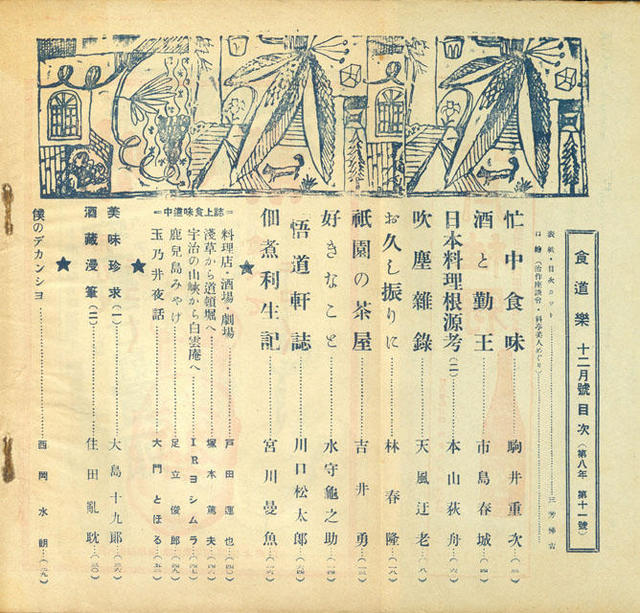 食道樂 十二月號目次 (第八年 第十一號)
表紙・目次カット
口繪 (治作座談會・料亭美人めぐり)
忙中食味 駒井重次
酒と勤王 市島春城
日本料理根源考(二) 本山荻舟
吹塵雜錄 天風迂老
お久し振りに 林春隆
祇園の茶屋 吉井勇
好きなこと 水守龜之助
悟道軒誌 川口松太郎
佃煮利生記 宮川曼魚
★
=誌上食味道中=
料理店・酒場・劇場 戸田蓮也
淺草から道頓堀へ 塚本篤夫
宇治の山峽から白雲庵へ IRヨシムラ
鹿兒島みやげ 足立俊郎
玉乃井夜話 大門とほる
★
美味珍求(一) 大島十九郎
酒藏漫筆(二) 住田亂耽
★
僕のデカンシヨ 西岡水朗